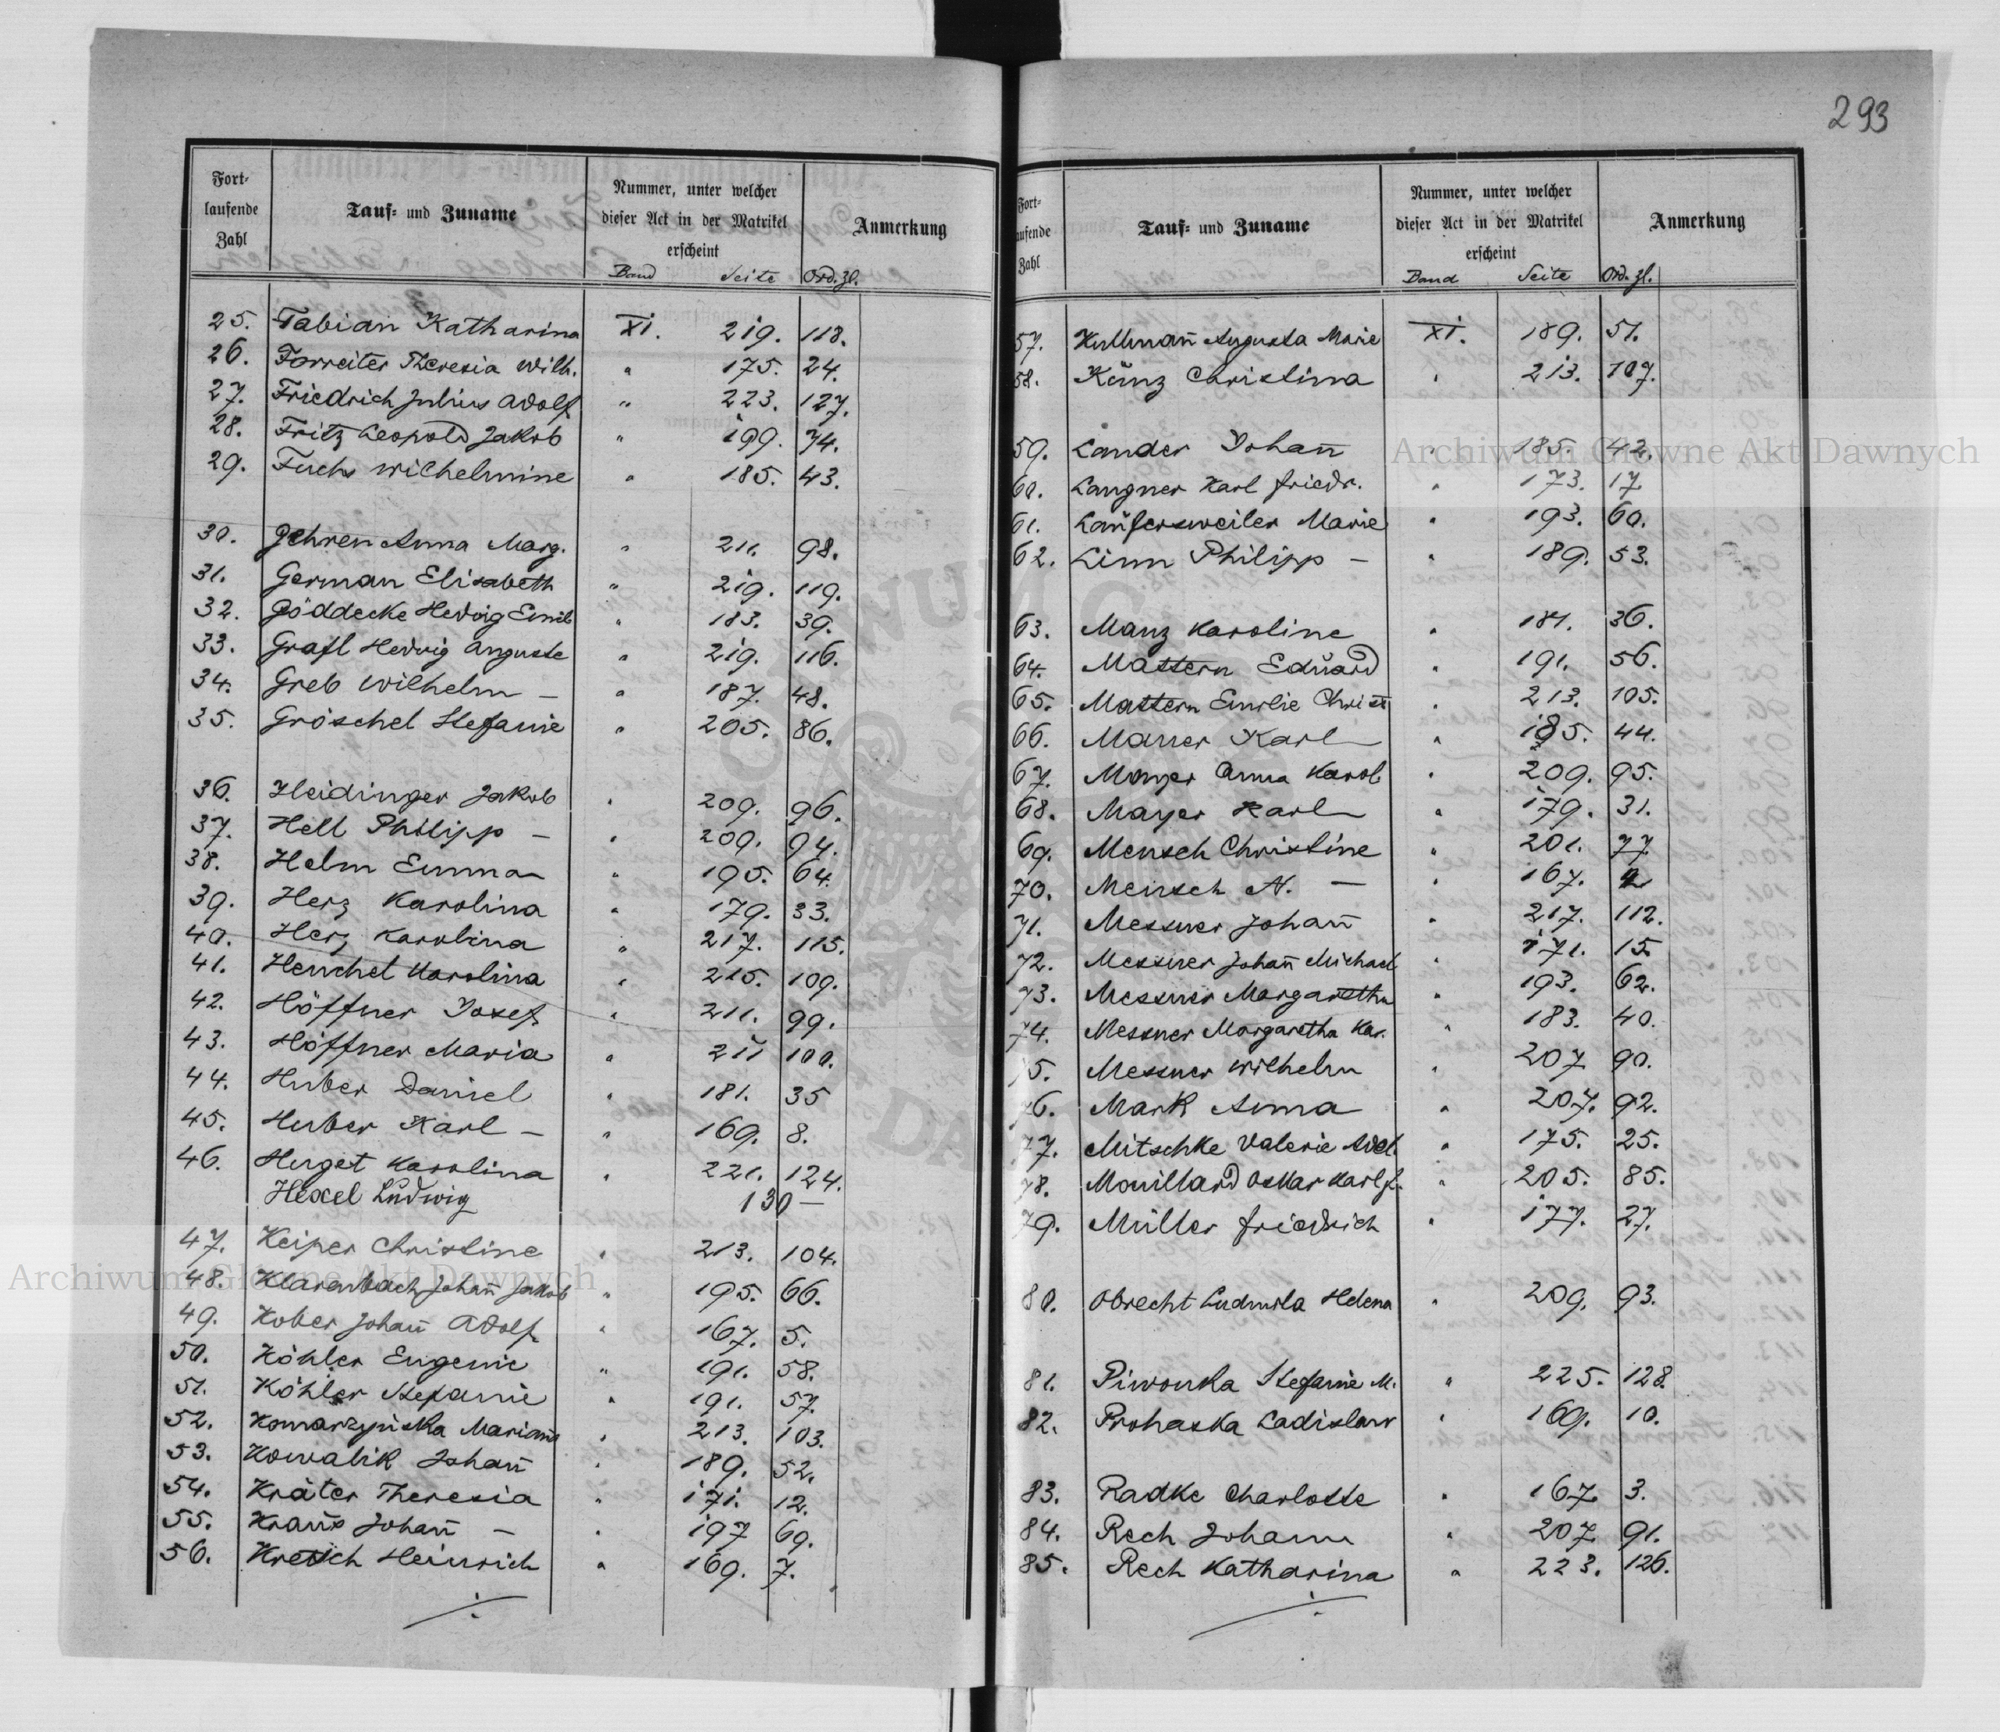 293
Fort-
laufende
Zahl
Tauf- und Zuname
Nummer, unter welcher
dieser Act in der Matrikel
erscheint
Anmerkung
Band Seite Ord. Zl.
25. Fabian Katharina XI. 219. 118.
26. Forreiter Theresia Wilh. " 175. 24.
27. Friedrich Julius Adolf " 223. 127.
28. Fritz Leopold Jakob " 199. 74.
29. Fuchs Wilhelmine " 185. 43.
30. Gehren Anna Marg. " 211. 98.
31. German Elisabeth " 219. 119.
32. Göddecke Hedwig Emil " 183. 39.
33. Grafl Hedwig Auguste " 219. 116.
34. Greb Wilhelm — " 187. 48.
35. Gröschel Stefanie " 205. 86.
36. Heidinger Jakob " 209. 96.
37. Hell Philipp — " 209. 94.
38. Helm Emma " 195. 64.
39. Herz Karolina " 179. 33.
40. Herz Karolina " 217. 115.
41. Henchel Karolina " 215. 109.
42. Höffner Josef " 211. 99.
43. Höffner Maria " 211 100.
44. Huber Daniel " 181. 35
45. Huber Karl — " 169. 8.
46. Huget Karolina " 221. 124.
Hexel Ludwig 130 —
47. Keiper Christine " 213. 104.
48. Klarenbach Johan̄ Jakob " 195. 66.
49. Kober Johan̄ Adolf " 167. 5.
50. Köhler Eugenie " 191. 58.
51. Köhler Stefanie " 191. 57.
52. Komarzyńska Marian̄a " 213. 103.
53. Kowalik Johan̄ " 189. 52.
54. Kräter Theresia " 171. 12.
55. Kraus Johan̄ — " 197 69.
56. Kretsch Heinrich " 169. 7.
Fort-
aufende
Zahl
Tauf- und Zuname
Nummer, unter welcher
dieser Act in der Matrikel
erscheint
Anmerkung
Band Seite Ord. Zl.
57. Kullman̄ Augusta Marie XI. 189. 51.
58. Künz Christina " 213. 107.
59. Lander Johan̄ " 185. 42.
60. Langner Karl Friedr. " 173. 17
61. Laufersweiler Marie " 193. 60.
62. Linn Philipp — " 189. 53.
63. Manz Karoline " 181. 36.
64. Mattern Eduard " 191. 56.
65. Mattern Emilie Christ " 213. 105.
66. Mauer Karl " 185. 44.
67. Mayer Anna Karol " 209. 95.
68. Mayer Karl " 179. 31.
69. Mensch Christine " 201. 77
70. Mensch N. — " 167. 2
71. Messner Johan̄ " 217. 112.
72. Messner Johan̄ Michael " 171. 15.
73. Messner Margaretha " 193. 62.
74. Messner Margaretha Kar. " 183. 40.
75. Messner Wilhelm " 207 90.
76. Mark Anna " 207. 92.
77. Mitschke Valerie Adel. " 175. 25.
78. Mouillard Oskar Karl f. " 205. 85.
79. Müller Friedrich " 177. 27.
80. Obrecht Ludmila Helena " 209. 93.
81. Piwonka Stefanie M. " 225. 128.
82. Prohaska Ladislaus " 169. 10.
83. Radke Charlotte " 167 3.
84. Rech Johann " 207 91.
85. Rech Katharina " 223. 126.
Archiwum Główne Akt Dawnych
Archiwum Główne Akt Dawnych